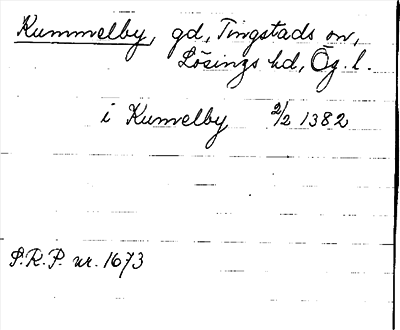 Kummelby, gd, Tingstads sn,
Lösings hd, Ög. l.
i Kumelby 2/2 1382
S.R.P. nr. 1673